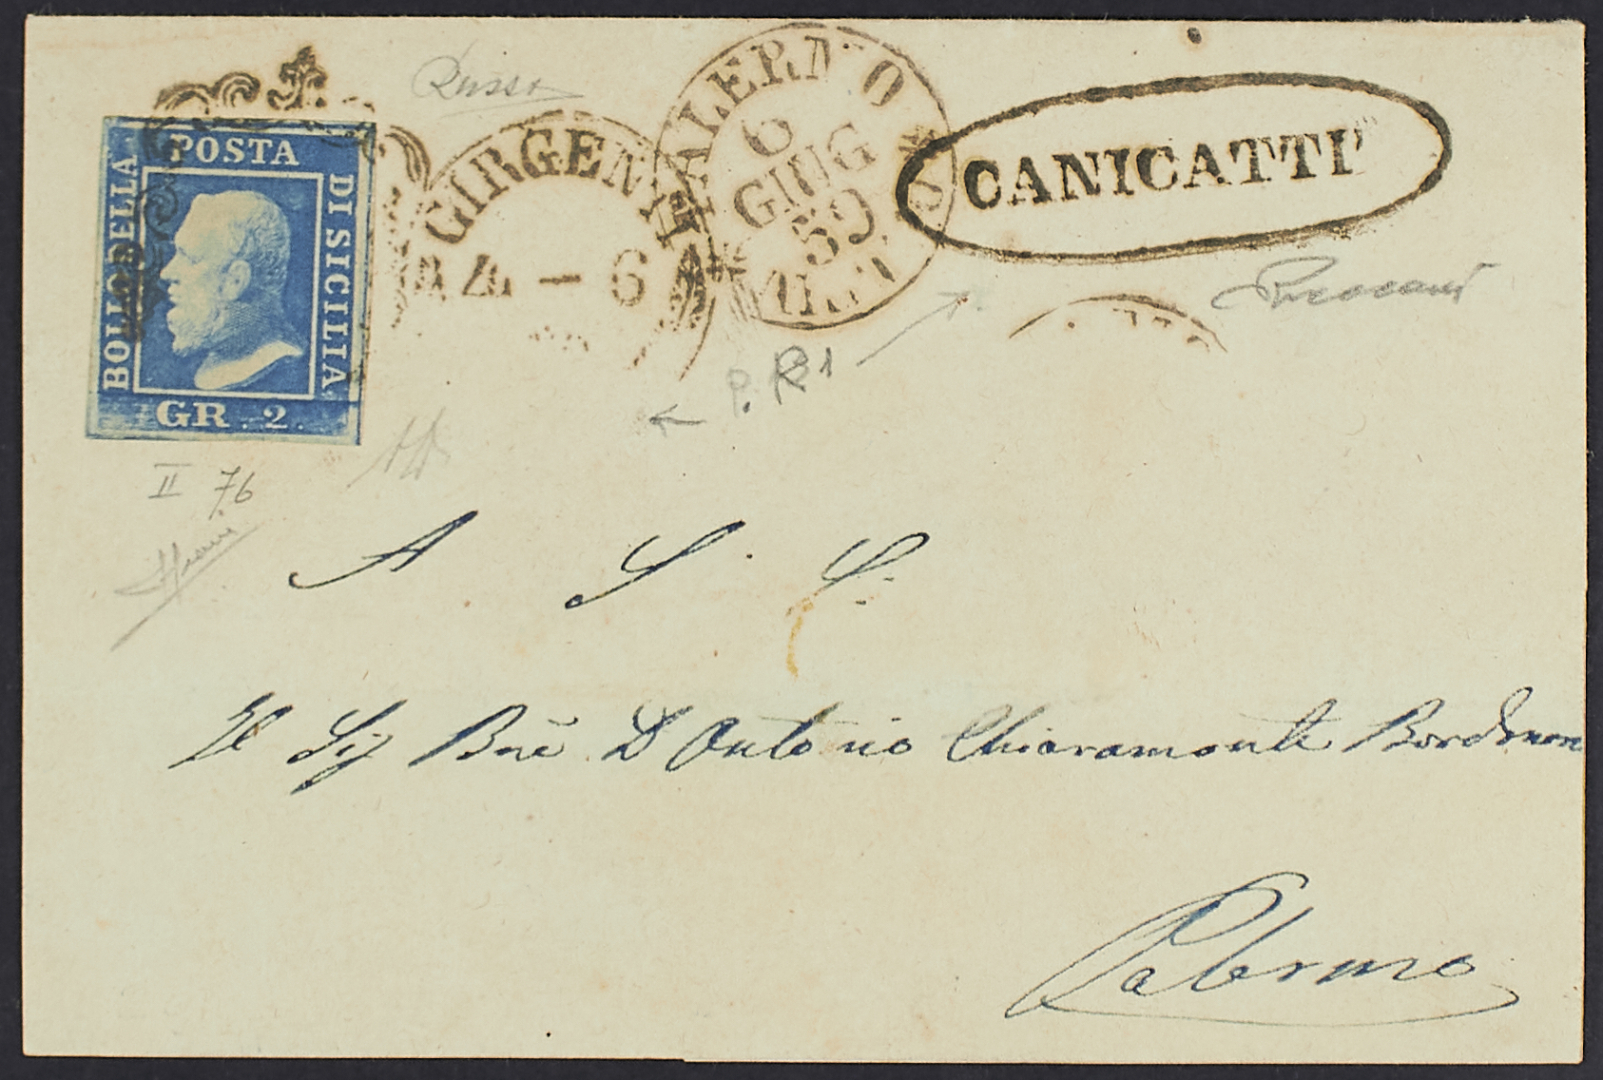 BOLLO DELLA
POSTA
DI SICILIA
GR. 2.
Russo
GIRGENTI
4 - 6
PALERMO
6
GIUG
59
ARRIVO
CANICATTI
P. R1
II 76
A S. S.
Il Sig Bne D Antonio Chiaramonte Bordonaro
Palermo